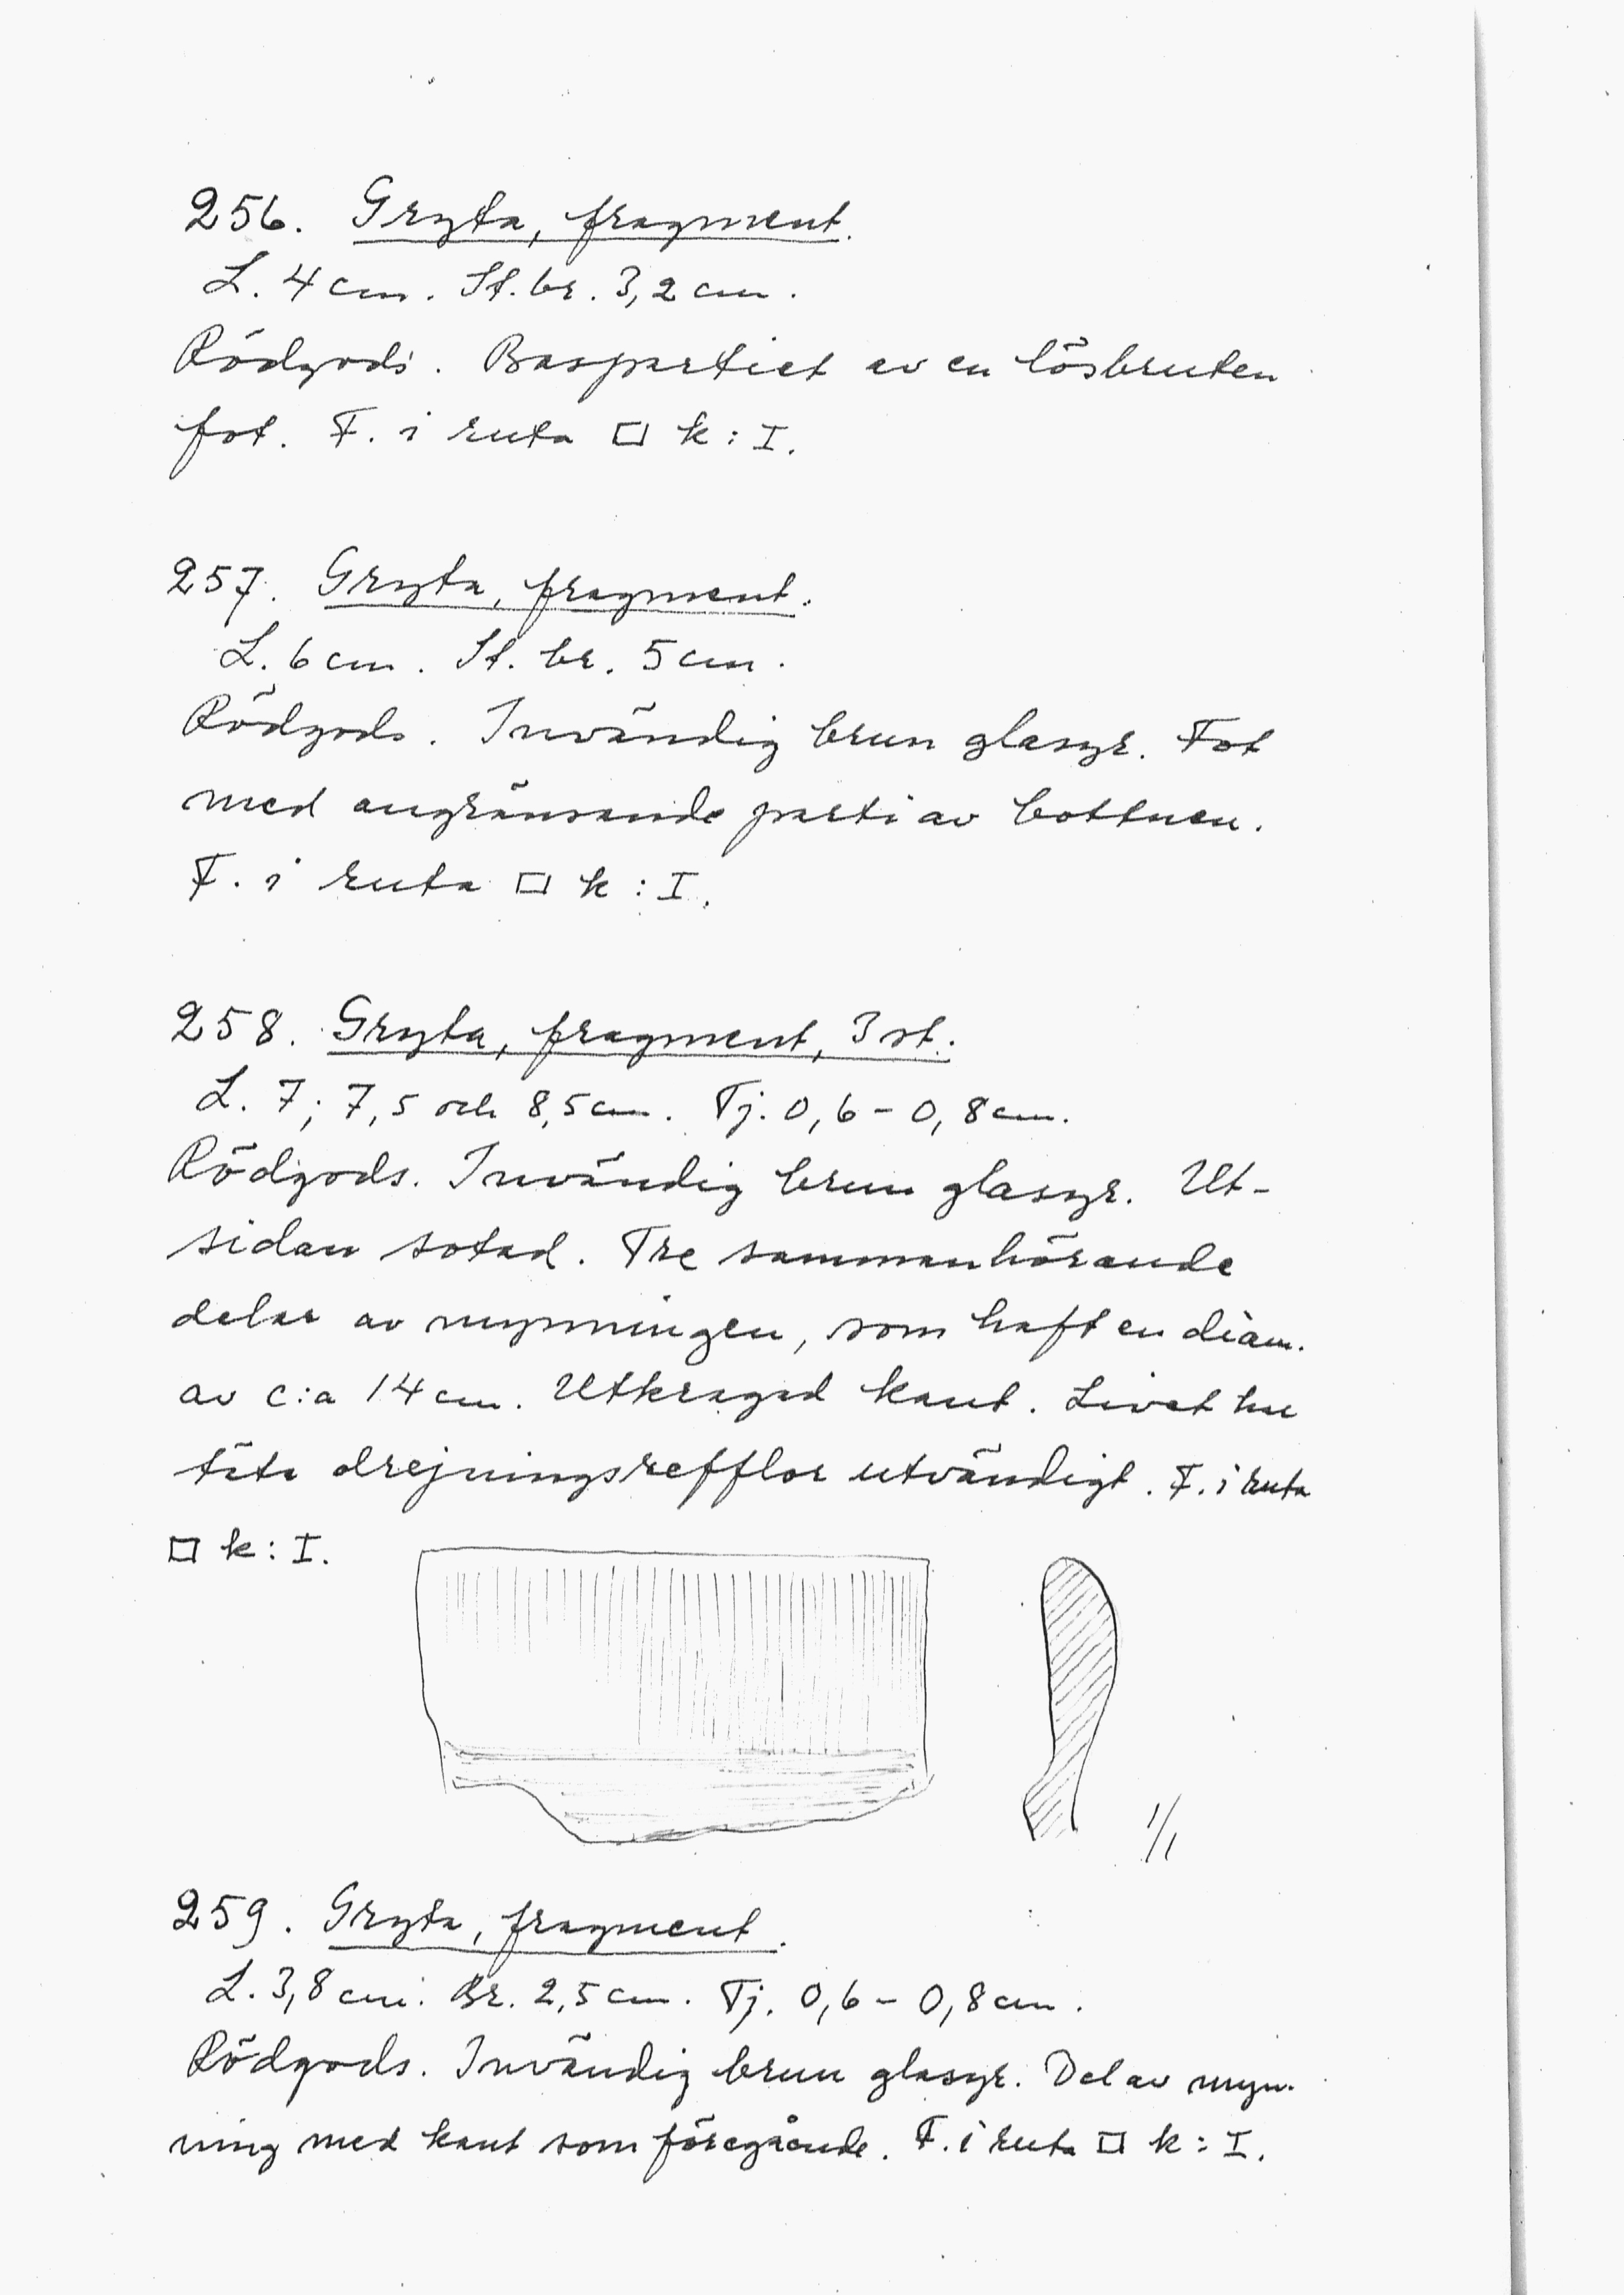 256. Gryta, fragment.
L. 4 cm. St. br. 3,2 cm.
Rödgods. Baspartiet av en lösbruten
fot. F. i ruta □ k : I.
257. Gryta, fragment.
L. 6 cm. St. br. 5 cm.
Rödgods. Invändig brun glasyr. Fot
med angränsande parti av bottnen.
F. i ruta □ k : I.
258. Gryta, fragment, 3 st.
L. 7; 7,5 och 8,5 cm. Tj. 0,6 - 0,8 cm.
Rödgods. Invändig brun glasyr. Ut-
sidan sotad. Tre sammanhörande
delar av mynningen, som haft en diam.
av c:a 14 cm. Utkragad kant. Livet har
täta drejningsrefflor utvändigt. F. i ruta
□ k : I.
1/1
259. Gryta, fragment.
L. 3,8 cm. Br. 2,5 cm. Tj. 0,6 - 0,8 cm.
Rödgods. Invändig brun glasyr. Del av myn-
ning med kant som föregående. F. i ruta □ k : I.